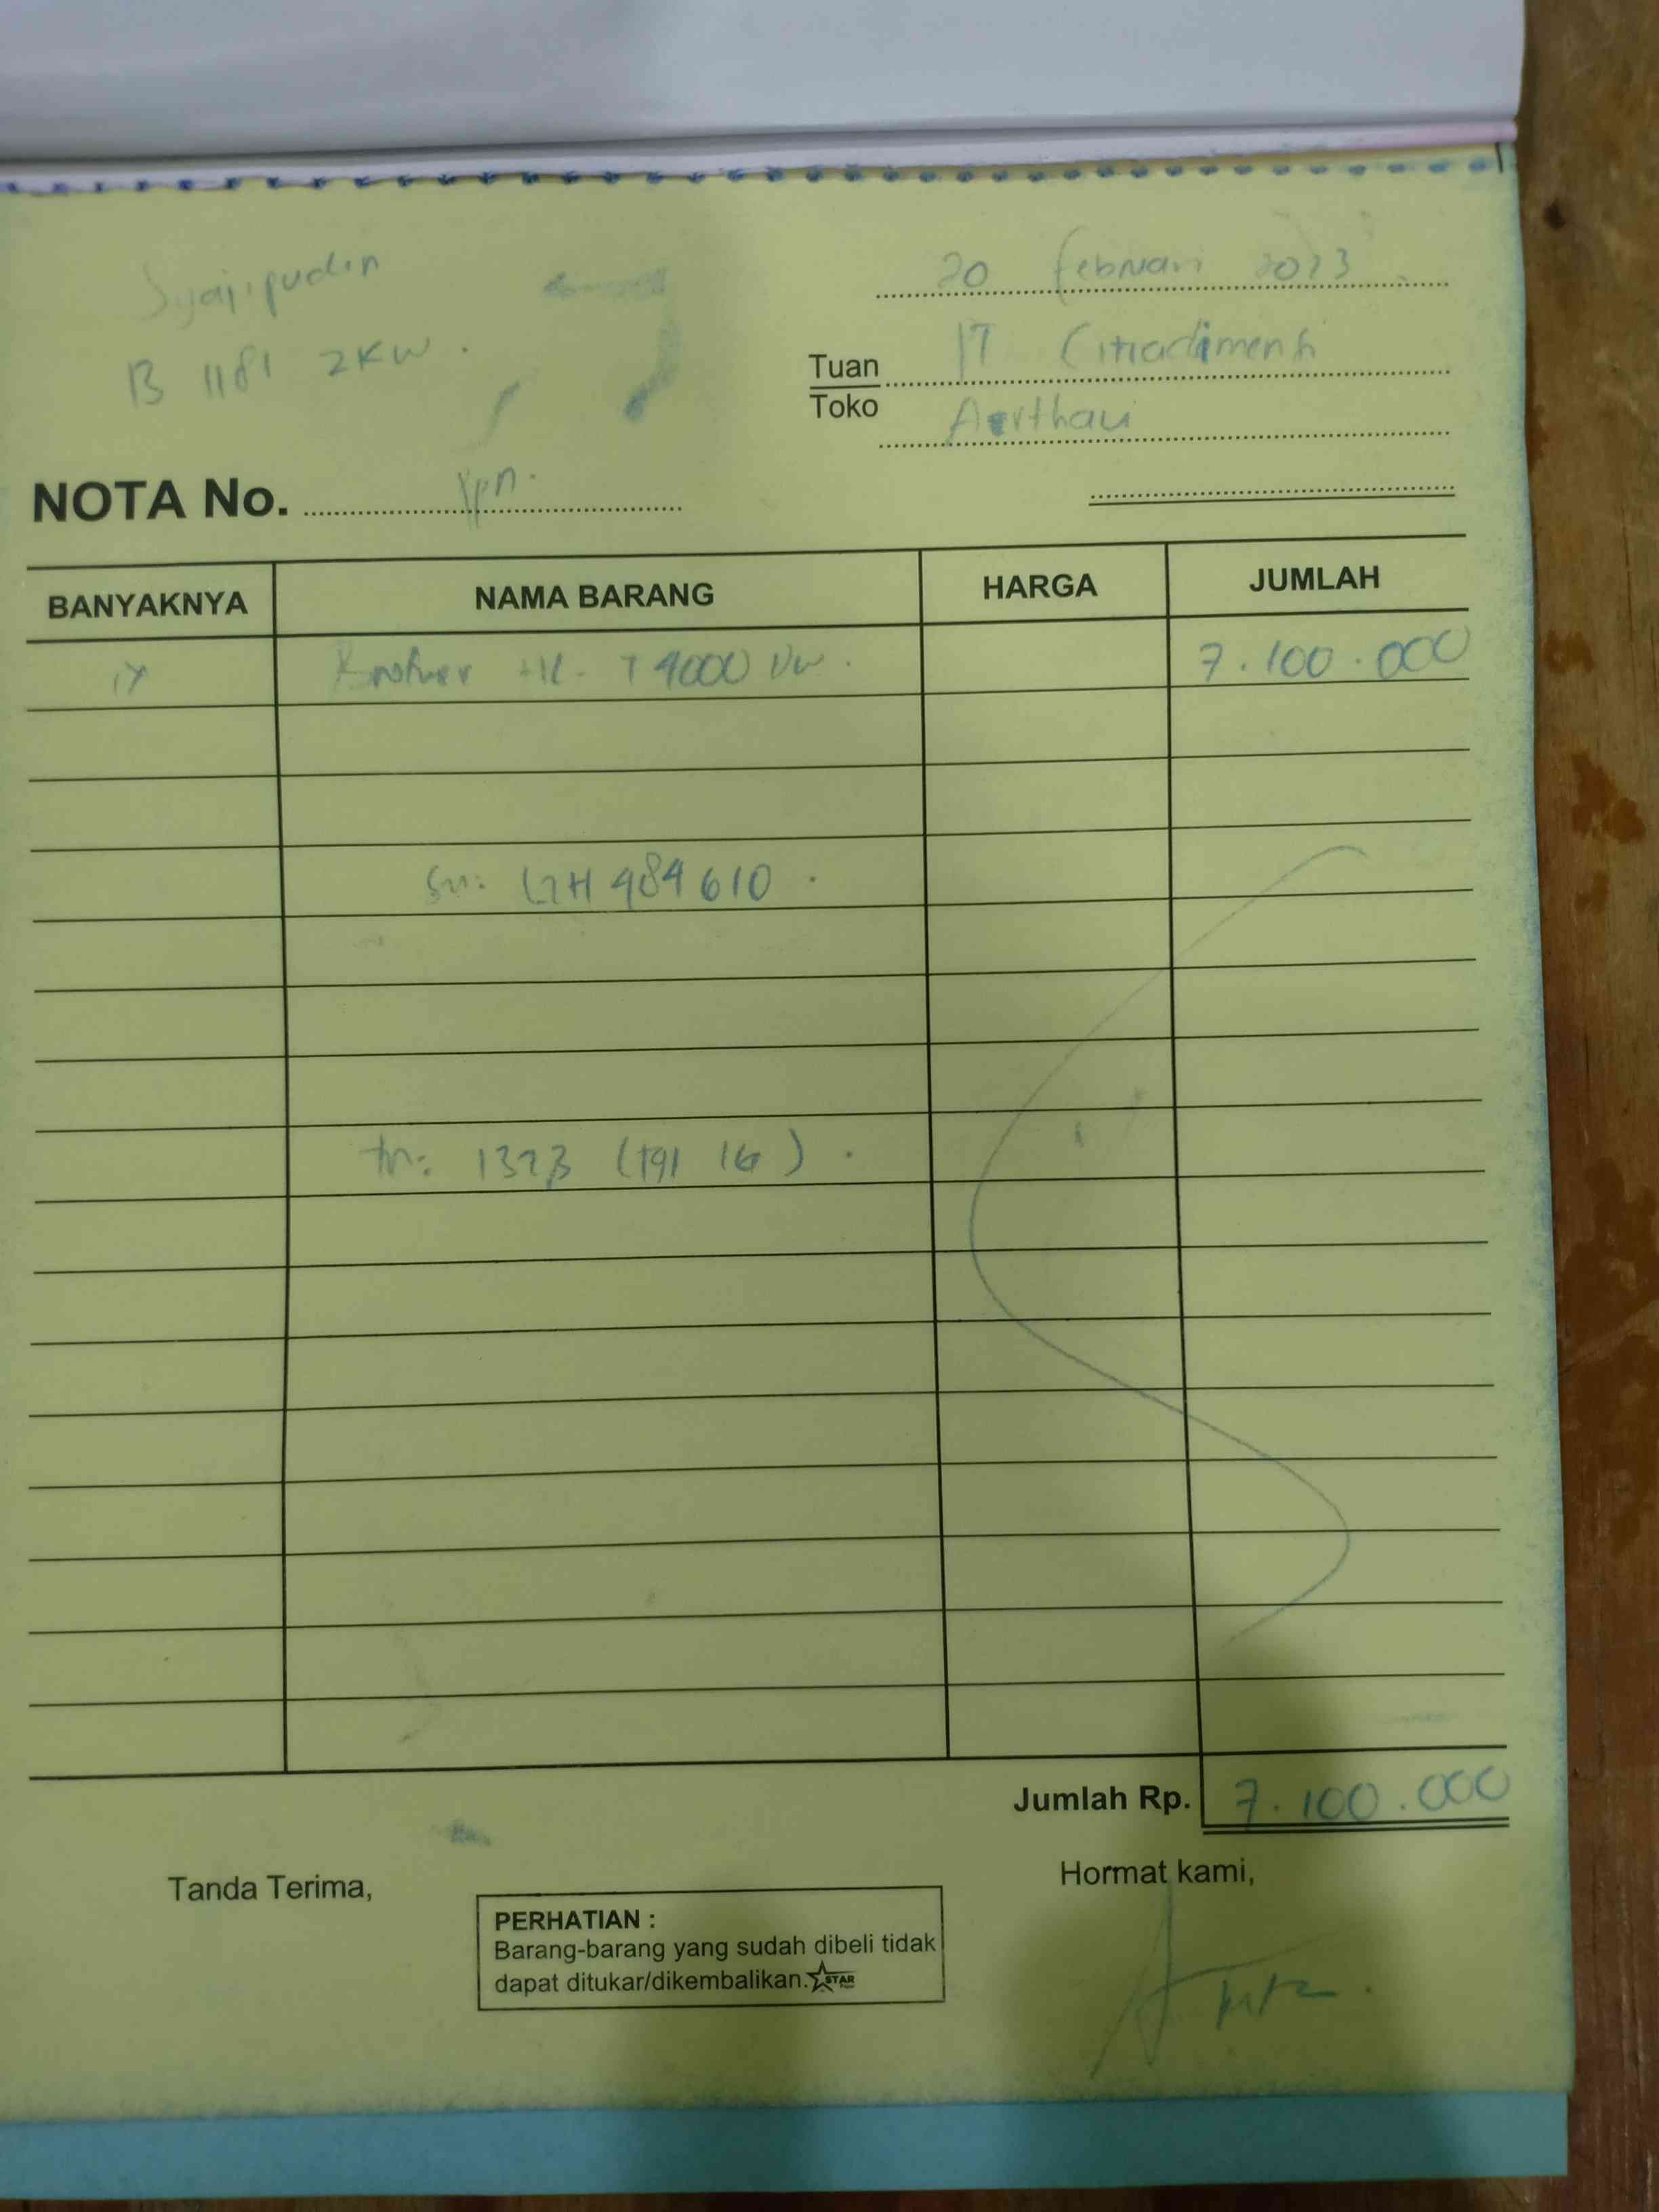 Syaifpudin
B 1181 ZKW.
20 Februari 2023
Tuan PT Citradimensi
Toko Arthali
NOTA No. ppn.
BANYAKNYA NAMA BARANG HARGA JUMLAH
1x Brother HL-T4000 DW. 7.100.000
sn: 484610.
tn: (191 16).
Jumlah Rp. 7.100.000
Tanda Terima,
Hormat kami,
PERHATIAN :
Barang-barang yang sudah dibeli tidak
dapat ditukar/dikembalikan. STAR